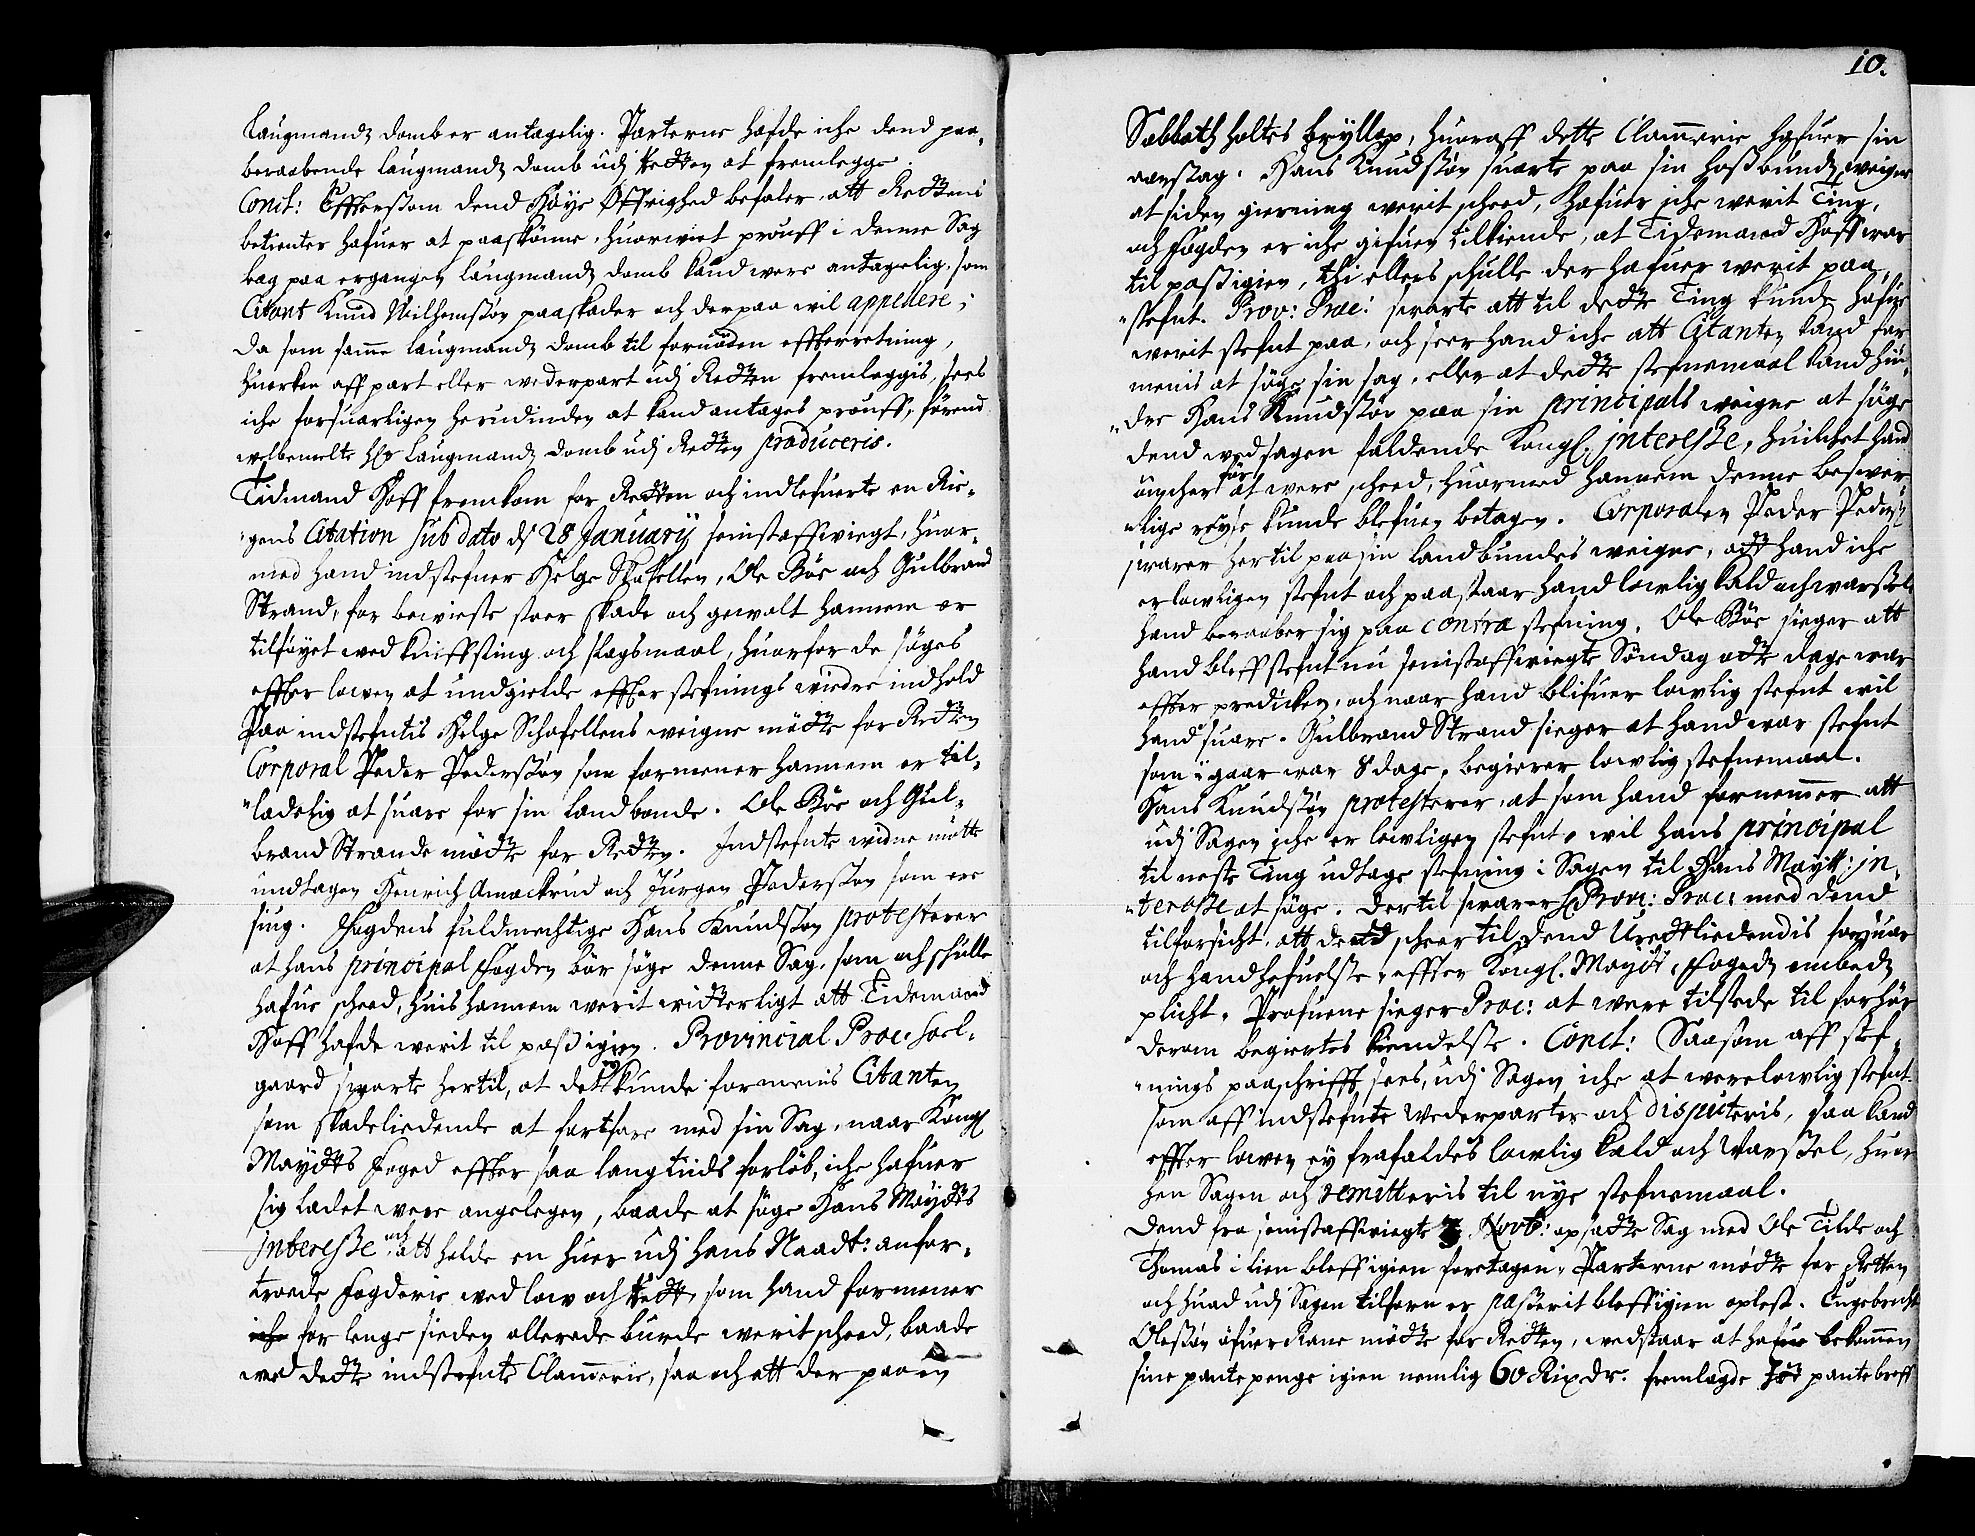 Laugmands domb er antagelig. Parterne hafde iche dend paa-
beraabende Laugmands domb udj Retten at fremlegge.
Conct: Effterssom dend Høye Øffrighed befaler, att Rettens
betienter hafuer at paaskiønne, huorwiet prouff i denne Sag
bag paa ergangen Laugmands domb kand were antagelig, som
Citant Knud Wilhemssøn paaskader och derpaa wil appellere;
da som samme Laugmands domb til fornøden effterretning,
huerken aff part eller wederpart udj Retten fremleggis, sees
iche forsuarligen herudinden at kand antages prouff, førend
welbemelte Hr Laugmands domb udj Retten produceris.
Tidmand Hoff fremkom for Retten och indlefuerte en Rie-
gens Citation sub dato ds 28 January senistaffwiegt, huor-
med hand indstefner Helge Skafellen, Ole Bøe och Gulbrand
Strand, for bewieste stoer skade och gewalt hannem er
tilføyet med kniffsting och slagsmaal, huorfor de søges
effter lowen at undgielde effter stefnings widre indhold
Paa indstefntis Helge Schafellens weigne mødte for Retten
Corporal Peder Pederssøn som formener hannem er til-
ladelig at suare for sin landbonde. Ole Bøe och Gul-
brand Strande mødte for Retten. Indstefnte widne møtte
undtagen Henrich Amackrud och Jurgen Pederssøn som ere
siug. Fogdens fuldmechtige Hans Knudssøn protesterer
at hans principal Fogden bør søge denne Sag, som och schulle
hafue scheed, huis hannem werit widterligt att Tidemand
Hoff hafde werit til pass igien. Provincial Proc: Soel-
gaard swarte hertil, at det ey kunde formenis Citanten
som skadeliedende at fortfare med sin Sag, naar Kongl
Maytts Foged effter saa lang tiids forløb, iche hafuer
sig ladet were angelegen, baade at søge Hans Maytts
Interesse och att holde en huer udj hans Naadt: anfor-
troede Fogderie wed low och Rett, som hand formener
iche for lenge sieden allerede burde werit scheed, baade
wed dette indstefnte Clammerie, saa och att der paa en
10.
Sabbath holtes bryllop, huoraff dette Clammerie hafuer sin
aarsag. Hans Knudssøn suarte paa sin hossbunds weigne
at siden gierning werit scheed, hafuer iche werit Ting,
och Fogden er iche gifuen tilkiende, at Tidemand Hoff war
til pass igien, thi ellers schulle der hafuer werit paa-
stefnt. Prov: Proc: swarte att til dette Ting kunde hafue
werit stefnt paa, och seer hand iche att Citanten kand for
menis at søge sin sag, eller at dette stefnemaal kand hin-
dre Hans Knudssøn paa sin principals weigne at søge
dend wed sagen faldende Kongl. interesse, huilchet hand
ønscher før at were scheed, huormed hannem denne beswer
lige reyse kunde blefuen betagen. Corporalen Peder Peders:
swarer hertil paa sin landbundes weigne, att hand iche
er lowligen stefnt och paastaar hand lowlig kald och warssel
hand beraaber sig paa contra stefning. Ole Bøe sieger att
hand bleff stefnt nu senistaffwiegte Søndag otte dage war
effter predicken, och naar hand blifuer lowlig stefnt wil
hand suare. Gulbrand Strand sieger at hand war stefnt
som igaar war 8 dage, begierer lowlig stefnemaal.
Hans Knudssøn protesterer, at som hand fornemmer att
udj Sagen iche er lowligen stefnt, wil hans principal
til neste Ting udtage stefning i Sagen til Hans Maytt: in-
teresse at søge. Dertil swarer Prov: Proc: med dend
tilforsicht, att dend scheer til dend Uretliedendis forsuar
och handhefuelsse, effter Kongl. Maytts Fogeds embeds
plicht. Profuene sieger Proc: at were tilstede til forhør
derom begiertes kiendelsse. Conct: Saasom aff stef-
nings paaschrifft sees, udj Sagen iche at were lowlig stefnt
som aff indstefnte Wederparter och disputeris, saa kand
effter lowen ey frafaldes lowlig kald och Warssel, huor
hen Sagen och remitteris til nye stefnemaal.
Dend fra senistaffwiegte 3 Novb: opsatte Sag med Ole Tilde och
Thomas i lien bleff igien foretagen. Parterne mødte for Retten
och huad udj Sagen tilforn er passerit bleff igien oplest. Engebricht
Olessøn øfuer Rane mødte for Retten, wedstaar at hafue bekommen
sine pantepenge igien nemlig 60 Rixdr. fremlagde pantebreff